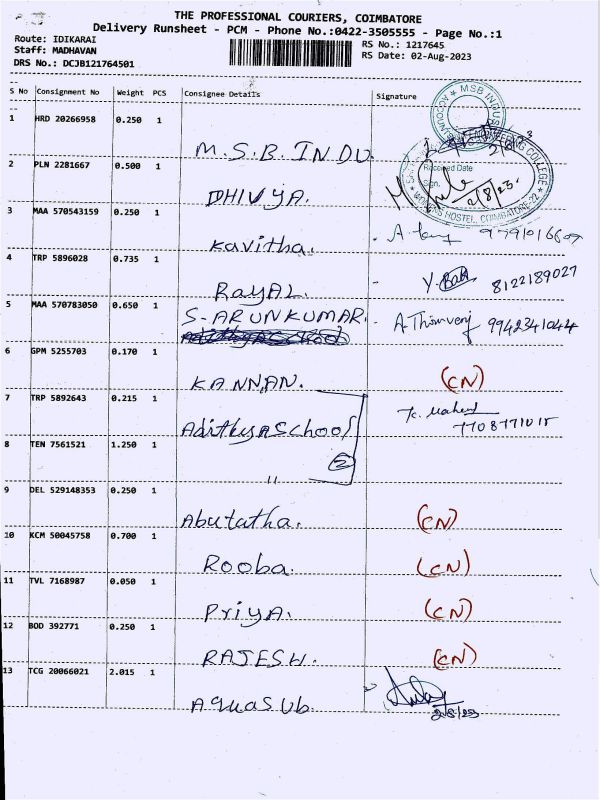 THE PROFESSIONAL COURIERS, COIMBATORE
Delivery Runsheet - PCM - Phone No.:0422-3505555 - Page No.:1
Route: IDIKARAI
RS No.: 1217645
Staff: MADHAVAN
RS Date: 02-Aug-2023
DRS No.: DCJB121764501
S No Consignment No Weight PCS Consignee Details Signature
MSB INDUS
ACCOUNT
1 HRD 20266958 0.250 1
M.S.B. INDU
ENGINEERING COLLEGE
Received Date
Sign.
2/8/23.
WOMENS HOSTEL, COIMBATORE-22
2 PLN 2281667 0.500 1
DHIVYA.
3 MAA 570543159 0.250 1
Kavitha.
9791016609
4 TRP 5896028 0.735 1
RayAL
8122189027
5 MAA 570783050 0.650 1
S-ARUNKUMAR.
9942341044
6 GPM 5255703 0.170 1
KANNAN. (CN)
7 TRP 5892643 0.215 1
AdithyASchool
7708771015
8 TEN 7561521 1.250 1
2
"
9 DEL 529148353 0.250 1
Abutatha. (CN)
10 KCM 50045758 0.700 1
Rooba. (CN)
11 TVL 7168987 0.050 1
Priya. (CN)
12 BOD 392771 0.250 1
RAJESH. (CN)
13 TCG 20066021 2.015 1
Aquasub.
2/8/23